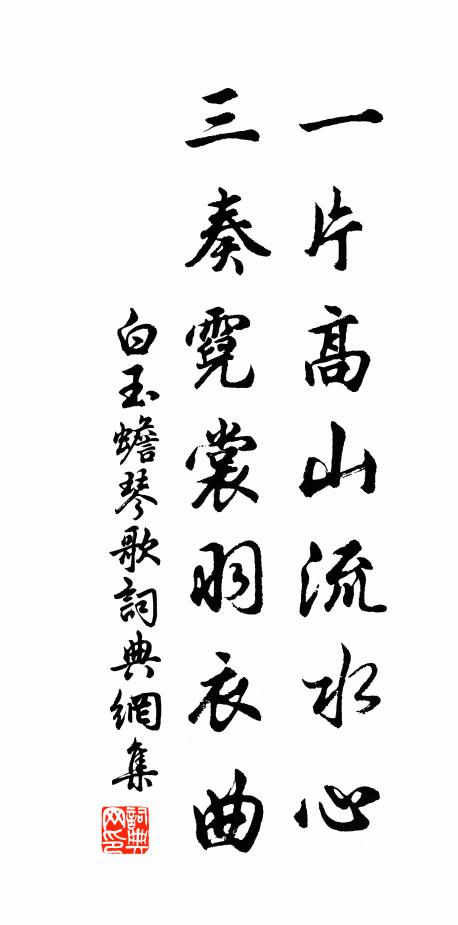 一片高山流水心
三奏霓裳羽衣曲
白玉蟾琴歌詞典網集
詞典網印